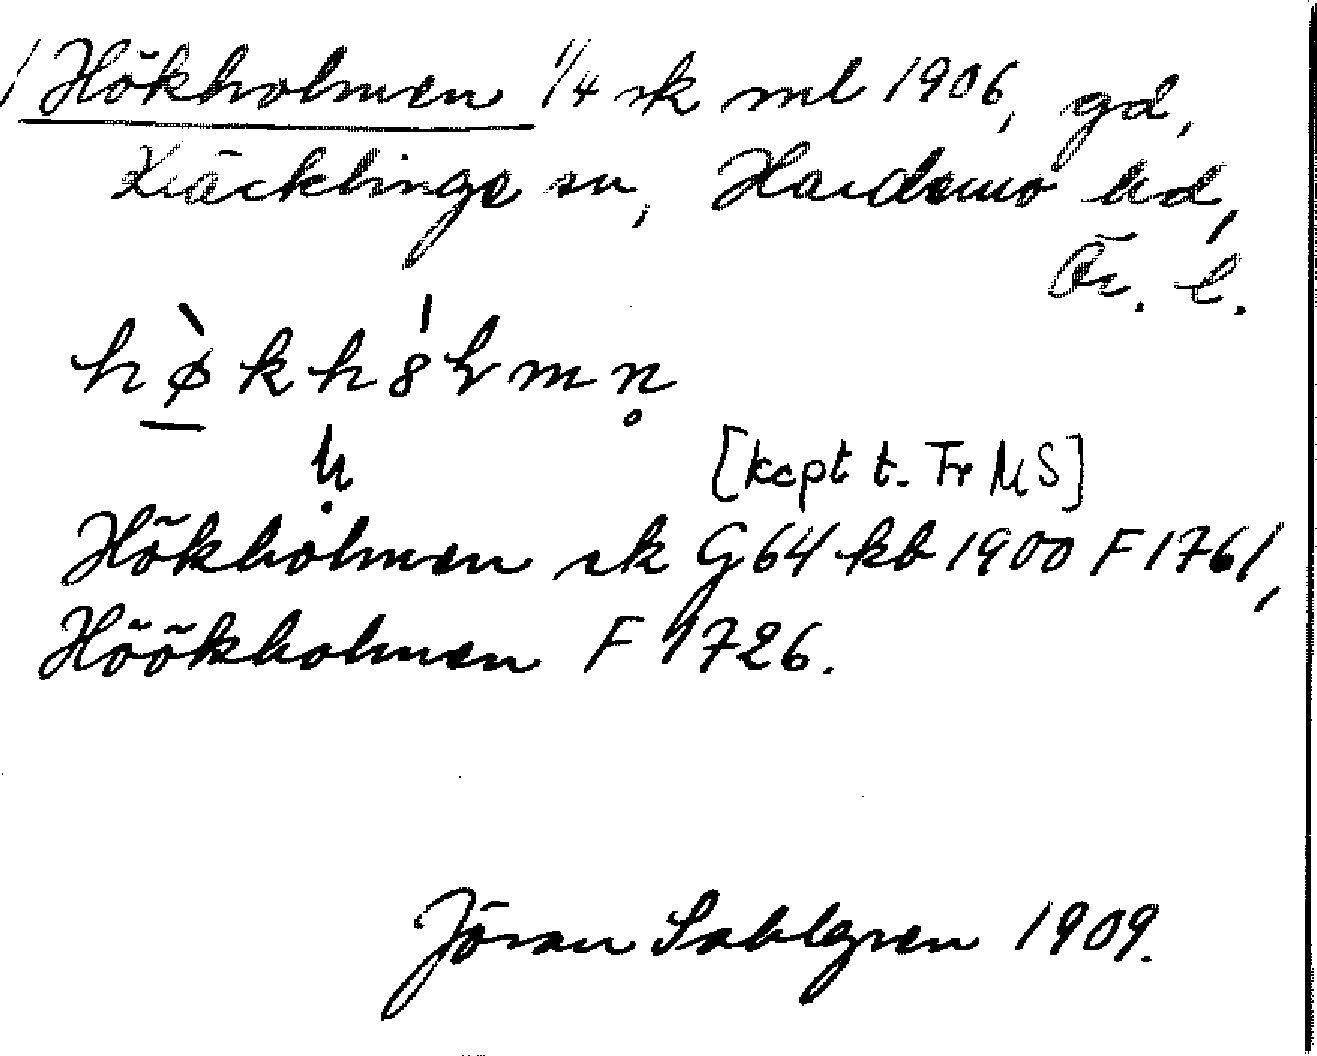 Hökholmen 1/4 sk ml 1906, gd,
Kräcklinge sn, Hardemo hd,
Ör. l.
[kcpt t. Fr MS]
Hökholmen sk G64 kb 1900 F 1761,
Höökholmen F 1726.
Jöran Sahlgren 1909.